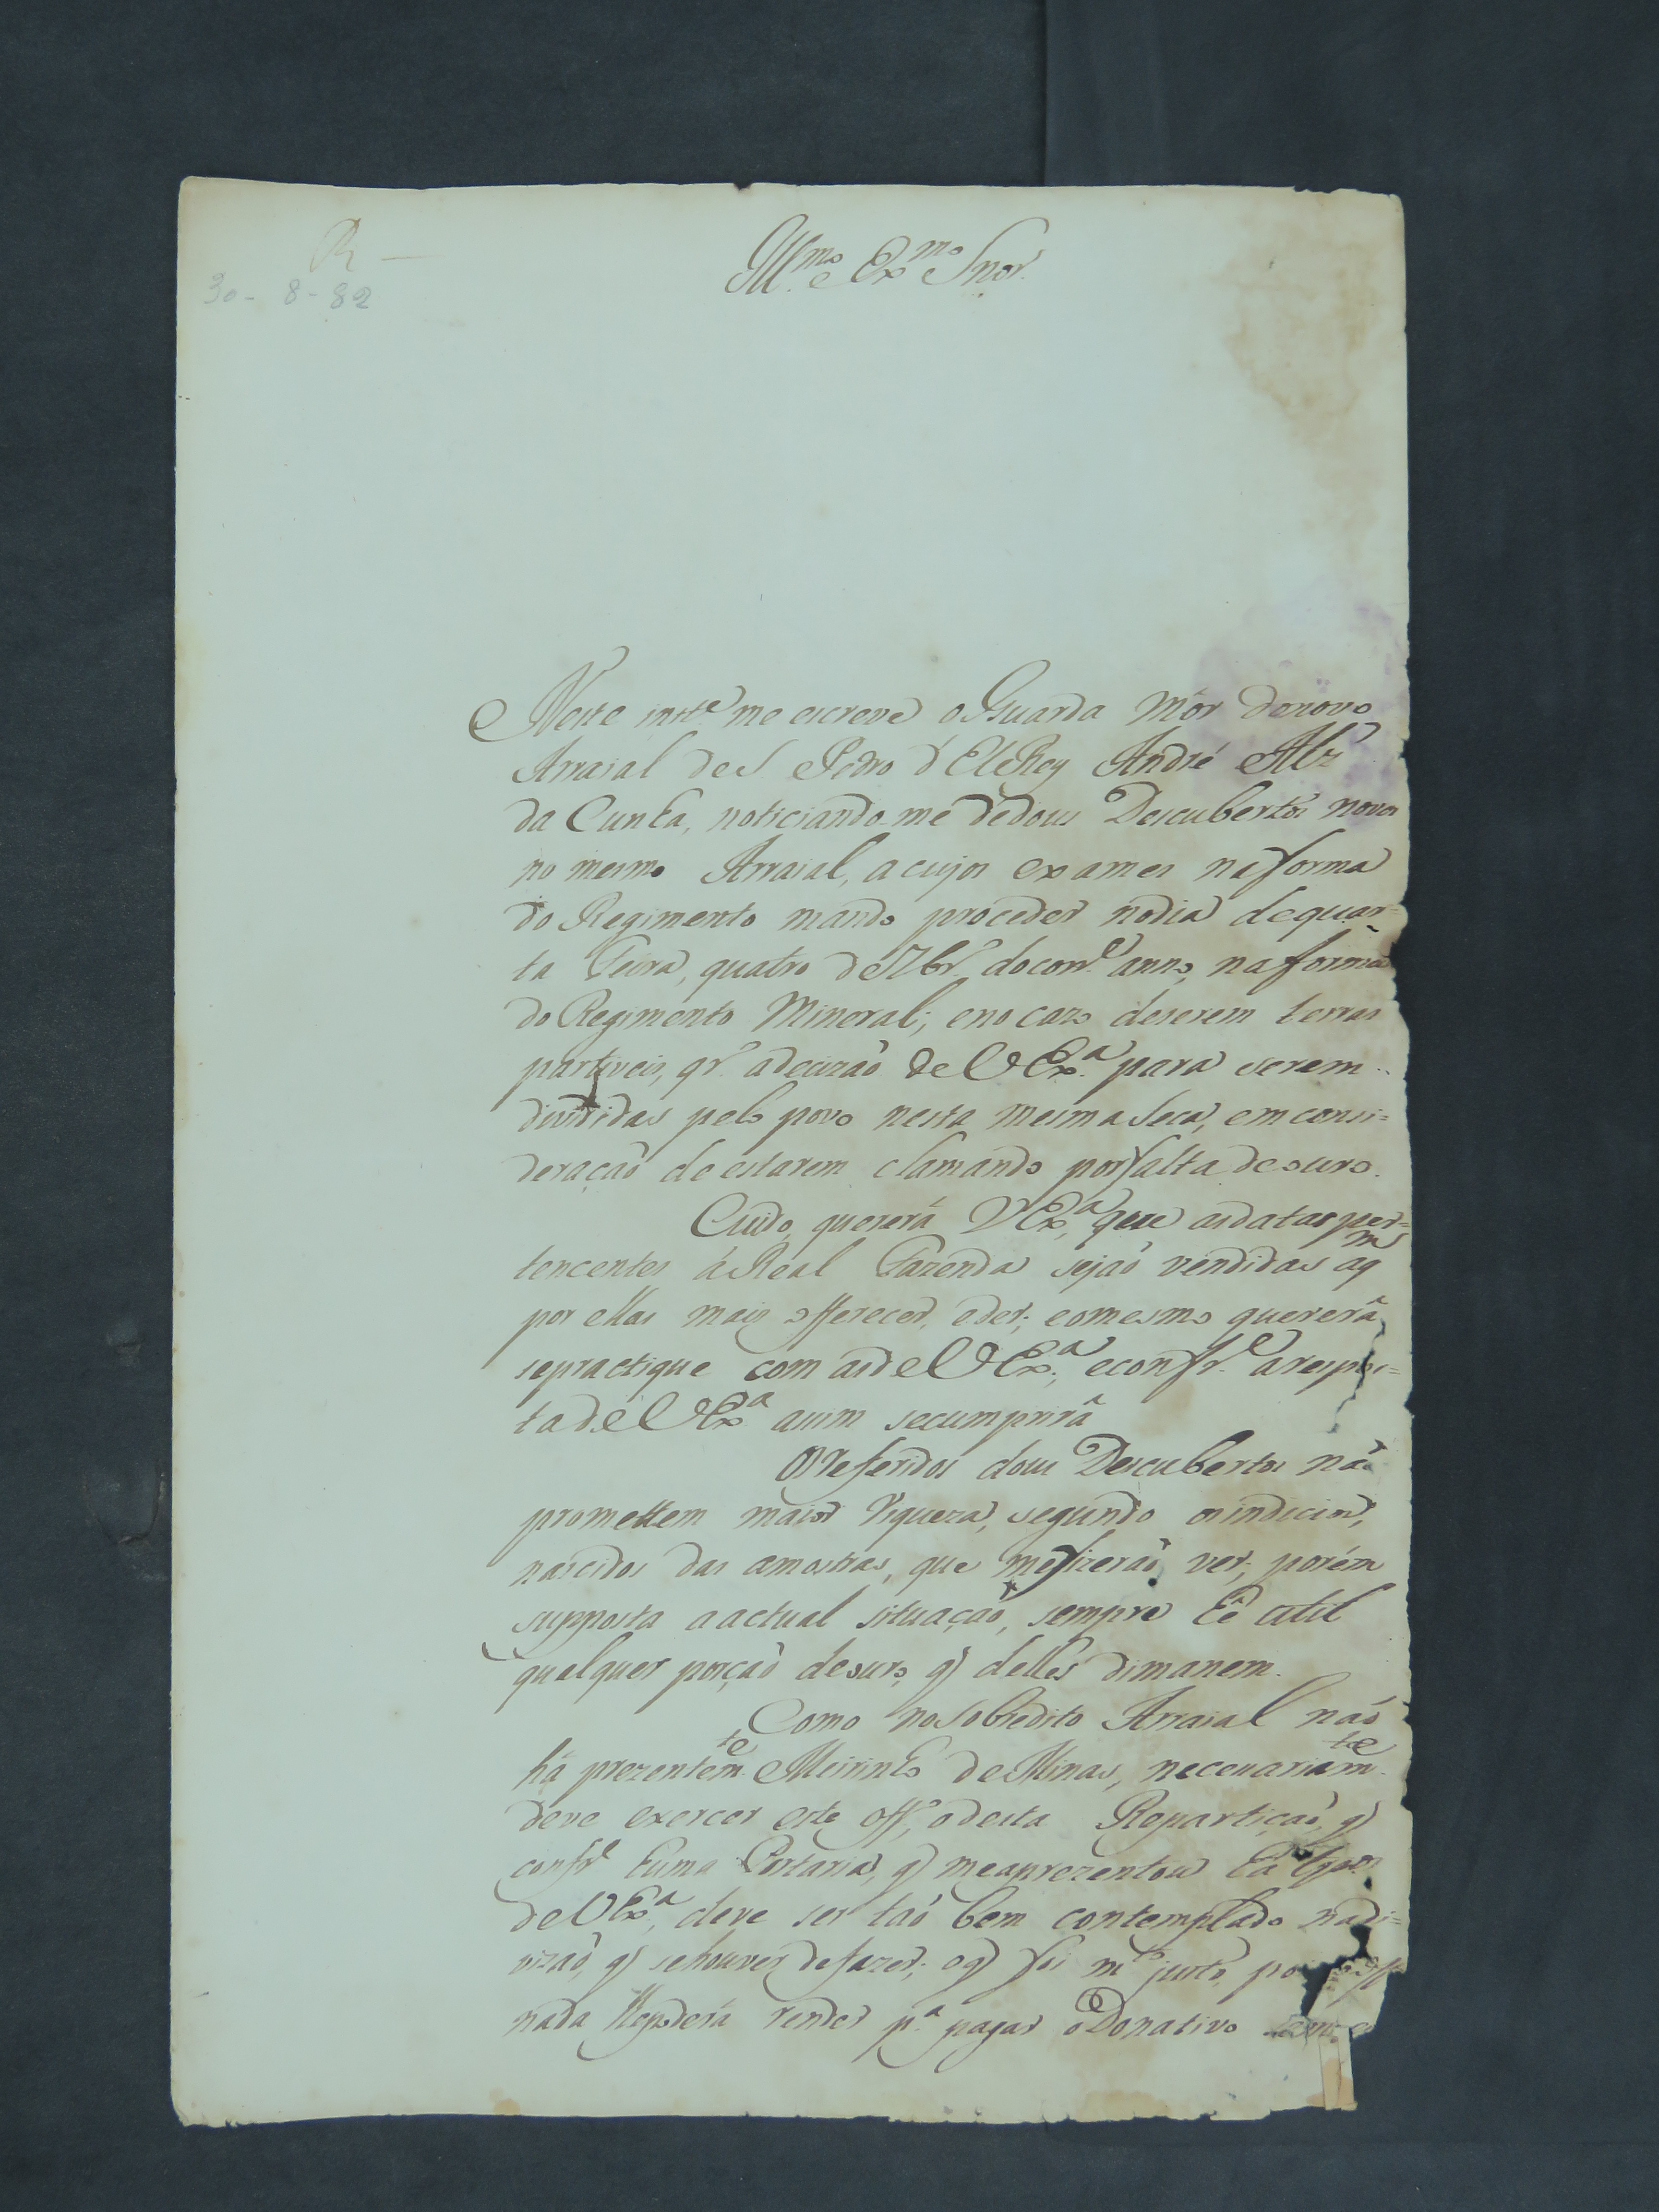 R —
30-8-82
Ill.mo e Ex.mo Snor.
Neste inst.e me escreve o Guarda Mór do novo
Arraial de S Pedro d'ElRey André Alz
da Cunha, noticiando me de dous Descubertos novos
no mesmo Arraial, a cujos exames na forma
do Regimento mando proceder no dia de quar=
ta Feira, quatro de 7br.o do corr.e anno, na forma
do Regimento Mineral; e no cazo de serem terras
partiveis, qr.o a decizaõ de V Ex.a para serem
divididas pelo povo nesta mesma Seca, em consi=
deraçaõ de estarem clamando por falta de ouro.
Cuido, quererá V Ex.a, que as datas per=
tencentes á Real Fazenda sejaõ vendidas a q.m
por ellas mais offerecer, e der; e o mesmo quererá
se practique com as de V Ex.a; e conf.e a respos=
ta de V Ex.a assim se cumprirá
Os referidos dous Descubertos naõ
promettem maior riqueza, segundo os indicios,
nascidos das amostras, que me fizeraõ ver; porém
supposta a actual situaçaõ, sempre hé util
qualquer porçaõ de ouro, q delles dimanem.
Como no Sobredito Arraial naõ
há prezentem.te Meirinho de Minas, necessariam.te
deve exercer este off.o, o desta Repartiçaõ, q
conf.e huma Portaria, q me aprezentou
de V Ex.a, deve ser taõ bem contemplado na di=
vizaõ, q se houver de fazer; e q foi m.to justo,
nada lhe poderá render p.a pagar o Donativo